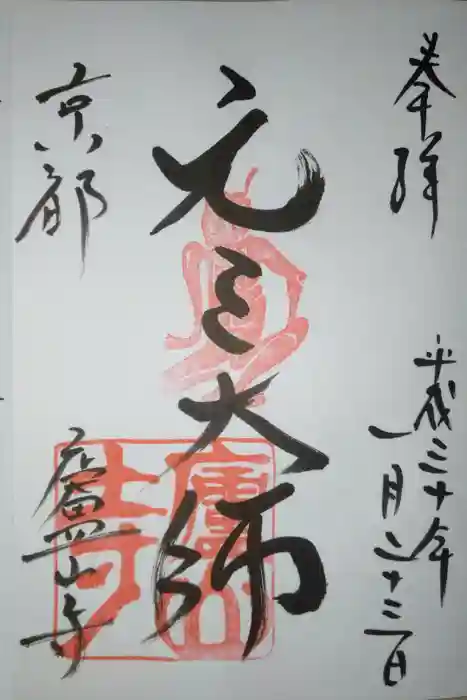 奉拝
平成三十年
一月二十三日
元三大師
京都
廬山寺